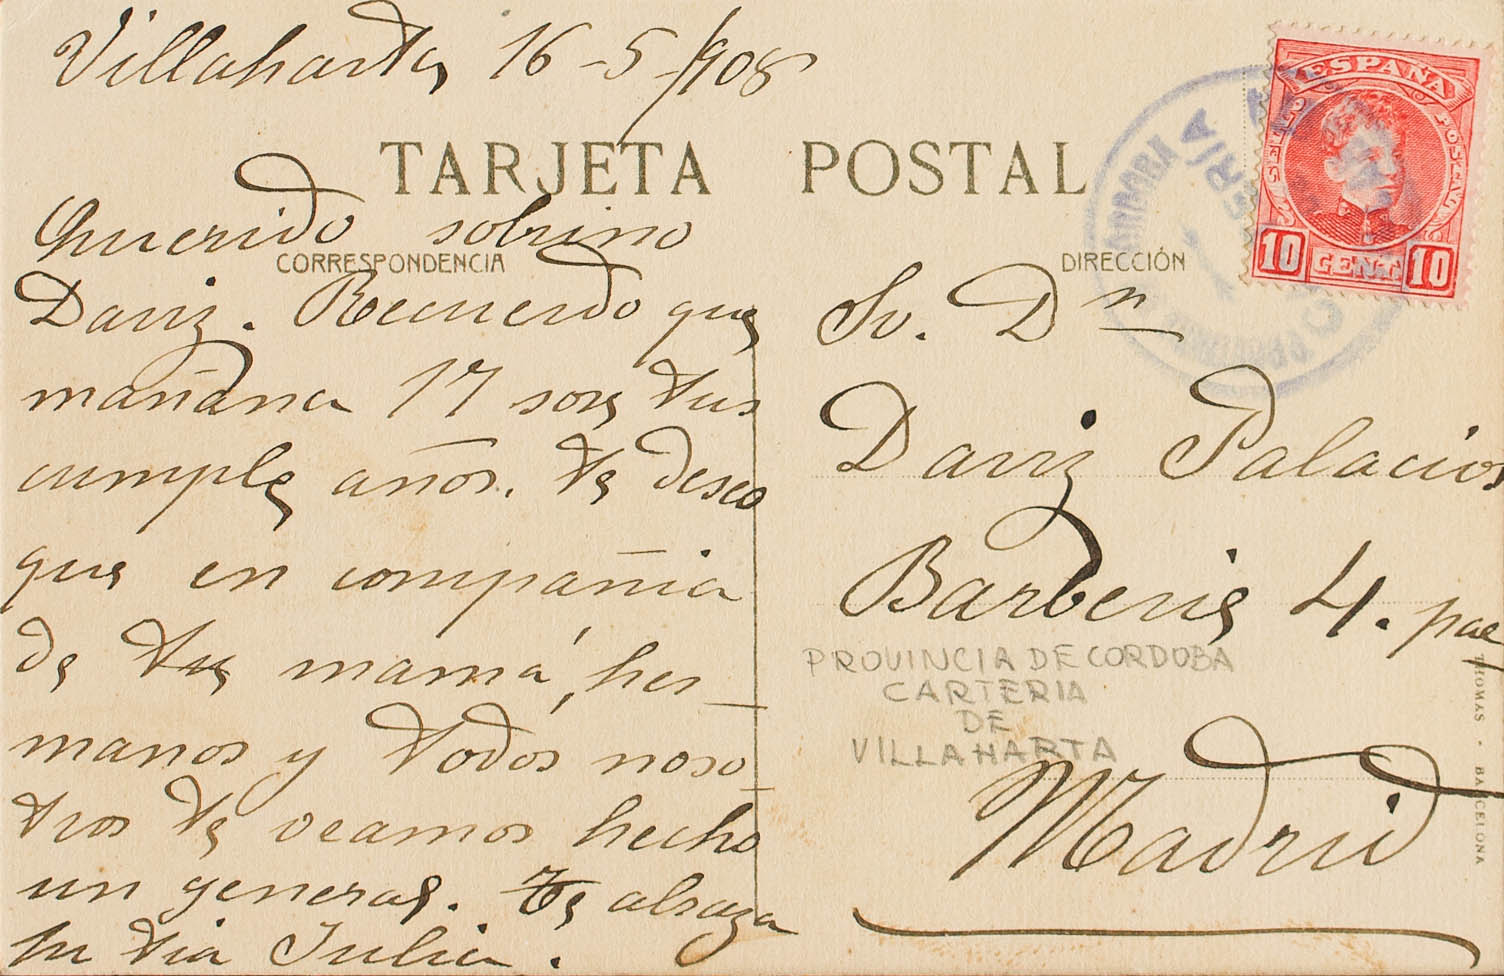 Villaharta 16-5-/908
TARJETA POSTAL
ESPAÑA
10 CENT. 10
CORRESPONDENCIA
Querido sobrino
Dariz. Recuerdo que
mañana 17 son tus
cumple años. te deseo
que en compañia
de tu mamá, her_
manos y todos noso_
tros te veamos hecho
un general. Te abraza
tu tia Julia.
DIRECCIÓN
Sr. Dn
Dariz Palacios
Barberis 4. pae
Madrid
PROVINCIA DE CORDOBA
CARTERIA
DE
VILLAHARTA
THOMAS - BARCELONA